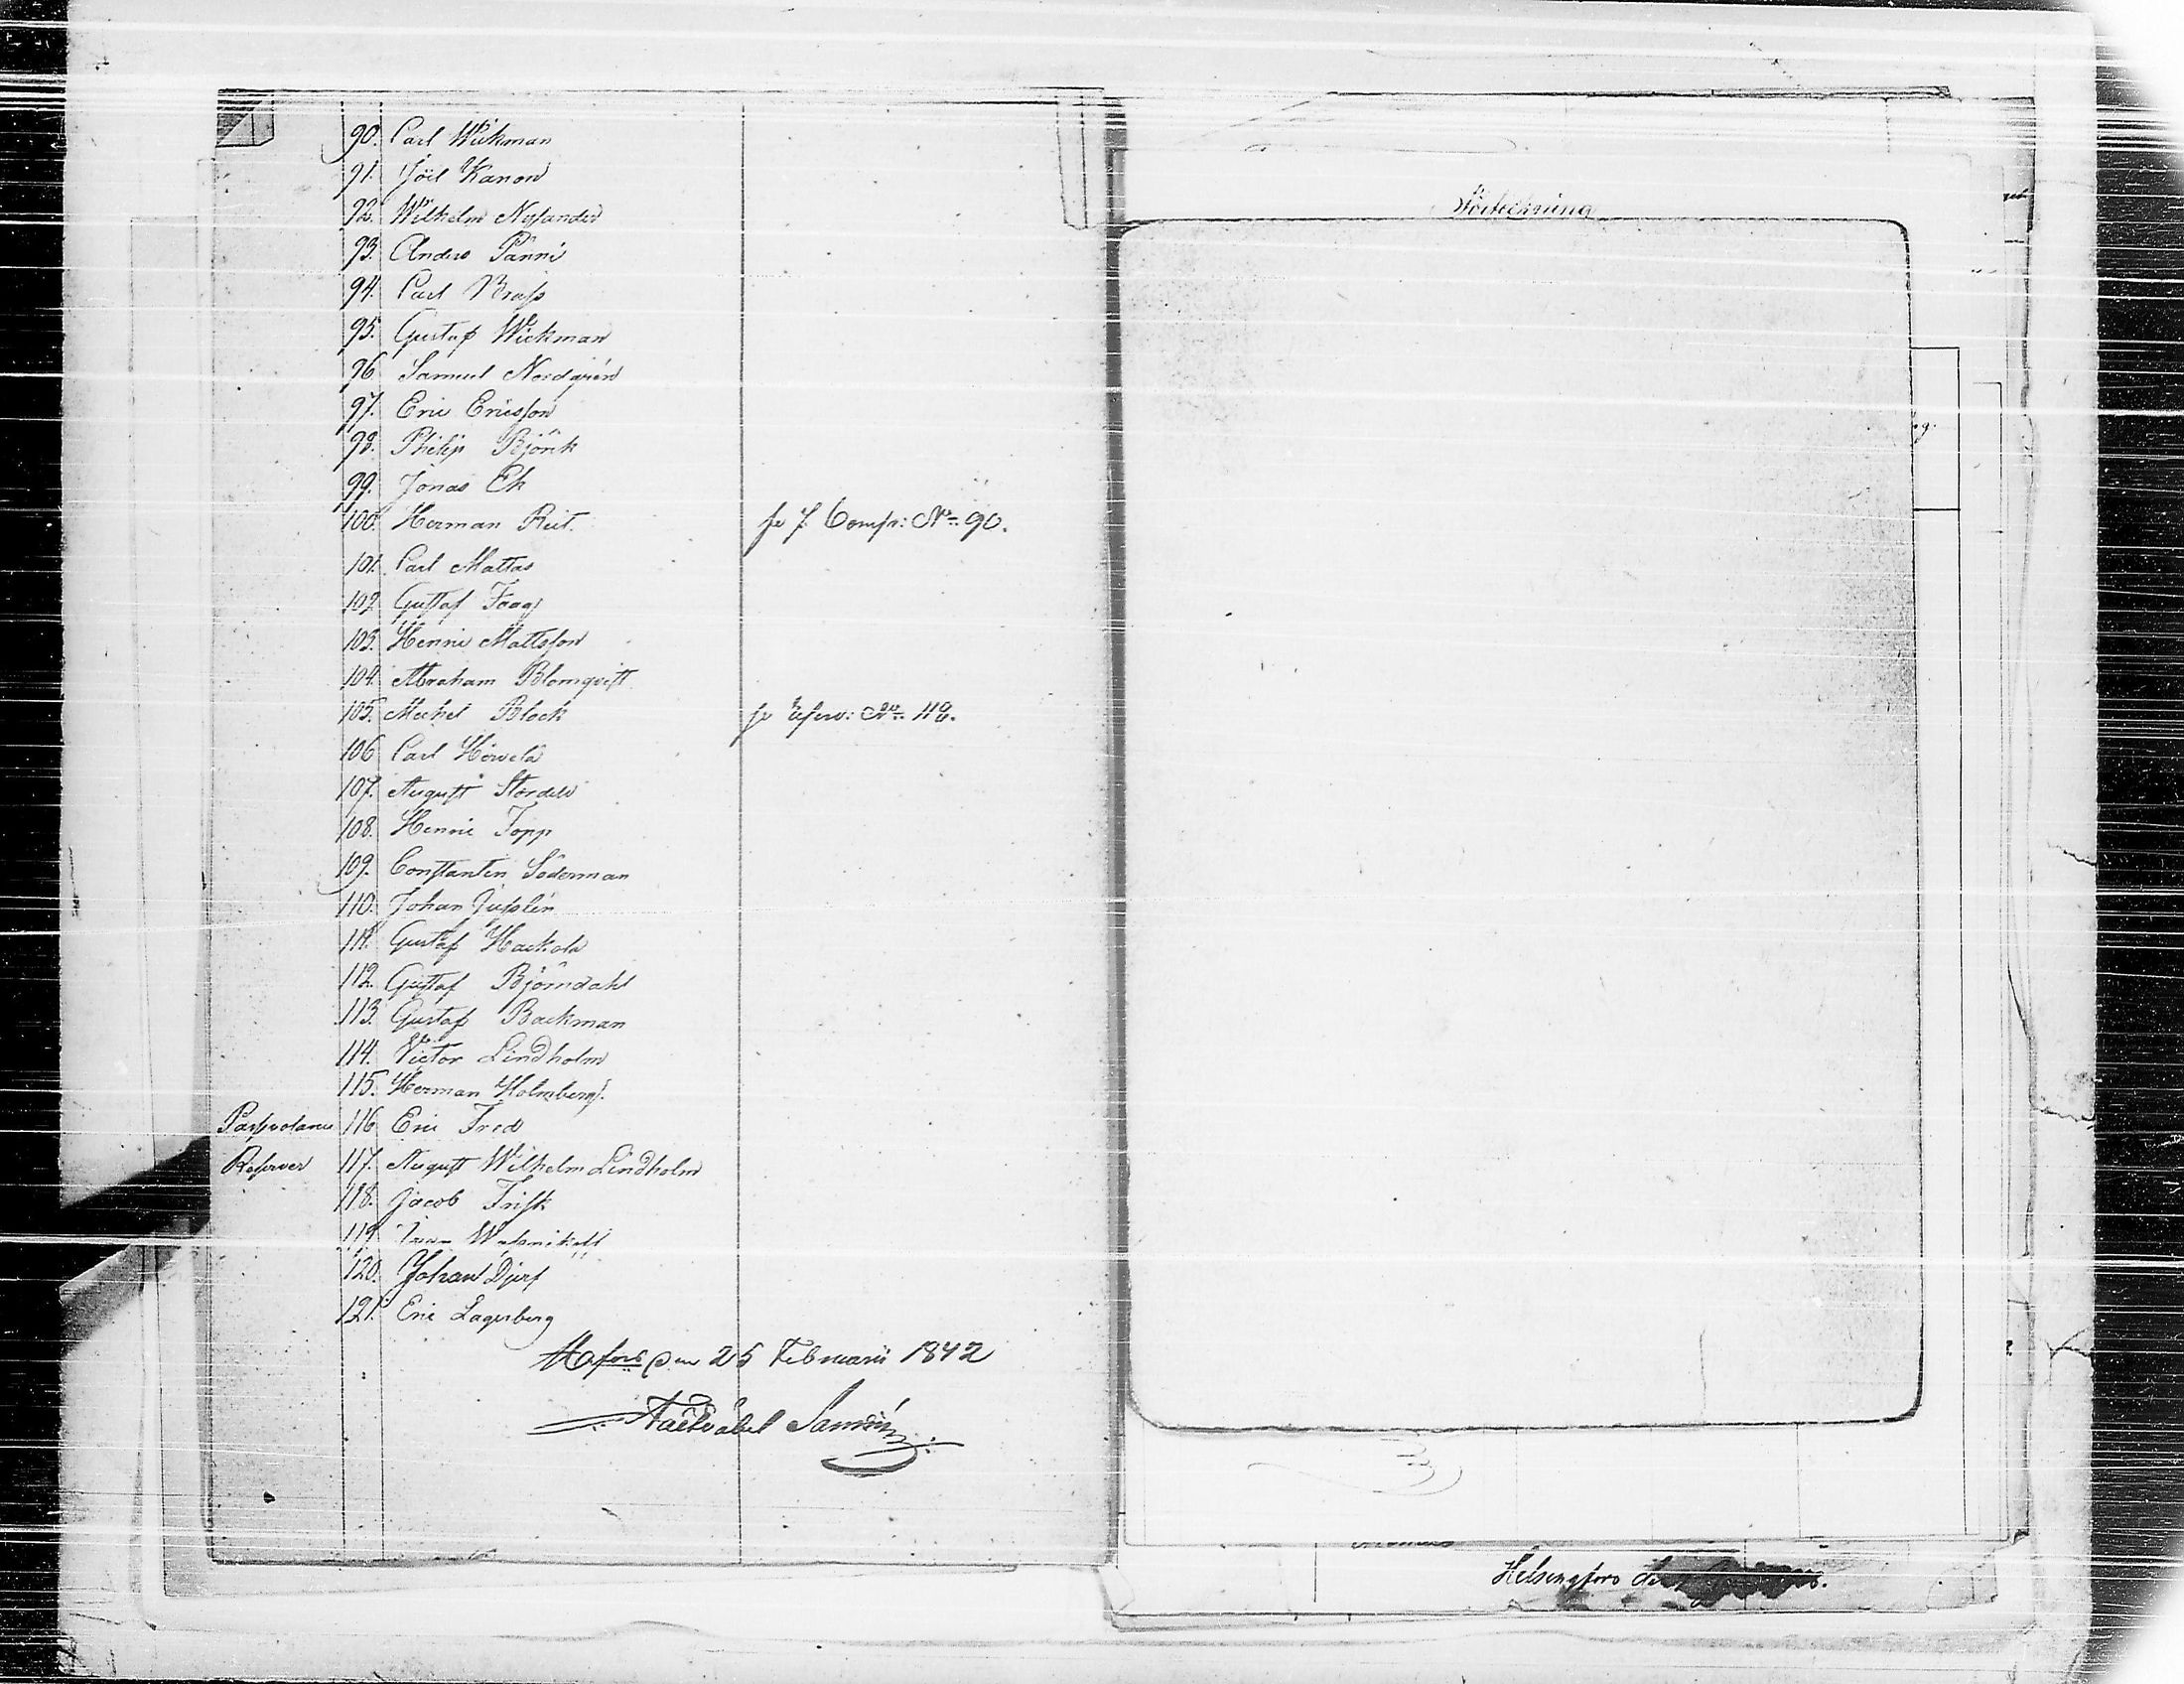 90. Carl Wickman
91. Joël Kanon
92. Wilhelm Nylander
93. Anders Panni
94. Carl Brass
95. Gustaf Wickman
96 Samuel Nordgrén
97. Eric Ericsson
98. Philip Björck
99. Jonas Ek
100. Herman Reit. se 7. Comp: No 90.
101. Carl Mattas
102 Gustaf Faag
103. Henric Mattsson
104. Abraham Blomqvist
105. Michel Block se Reserv: No 48.
106 Carl Höwela
107. August Stordell
108. Henric Topp
109. Constantin Söderman
110. Johan Jusslin
111. Gustaf Hackola
112. Gustaf Björndahl
113. Gustaf Backman
114. Victor Lindholm
115. Herman Holmberg.
116 Eric Fred
Reserver 117. August Wilhelm Lindholm
118. Jacob Frisk
119
120. Johan Djerf
121. Eric Lagerberg
H:fors den 25 Februarii 1842
Faeltväbel
Helsingfors